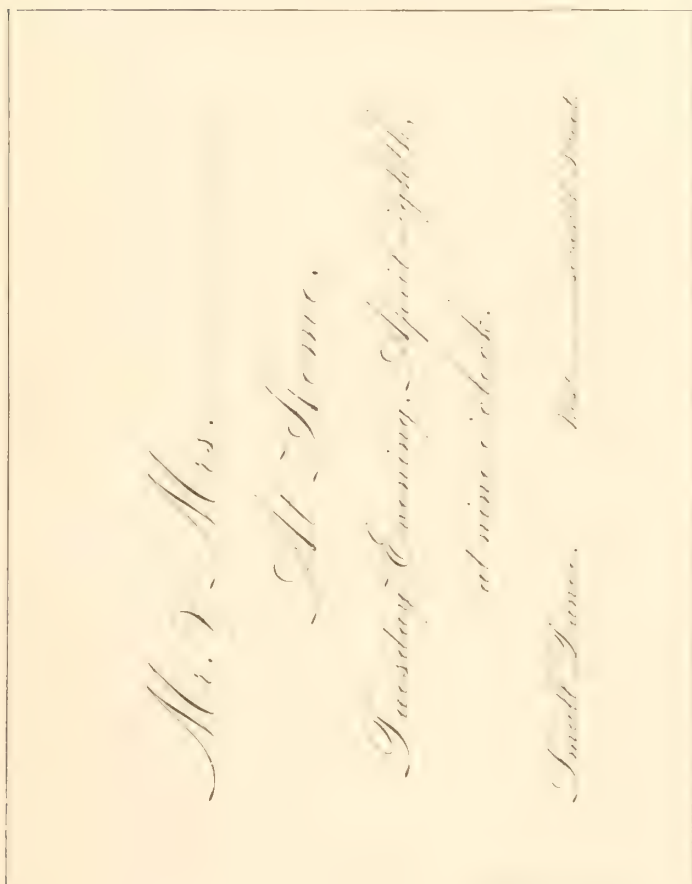 Mr. & Mrs.
At Home.
Tuesday Evening, April eighth,
at nine o'clock.
Small Dance.